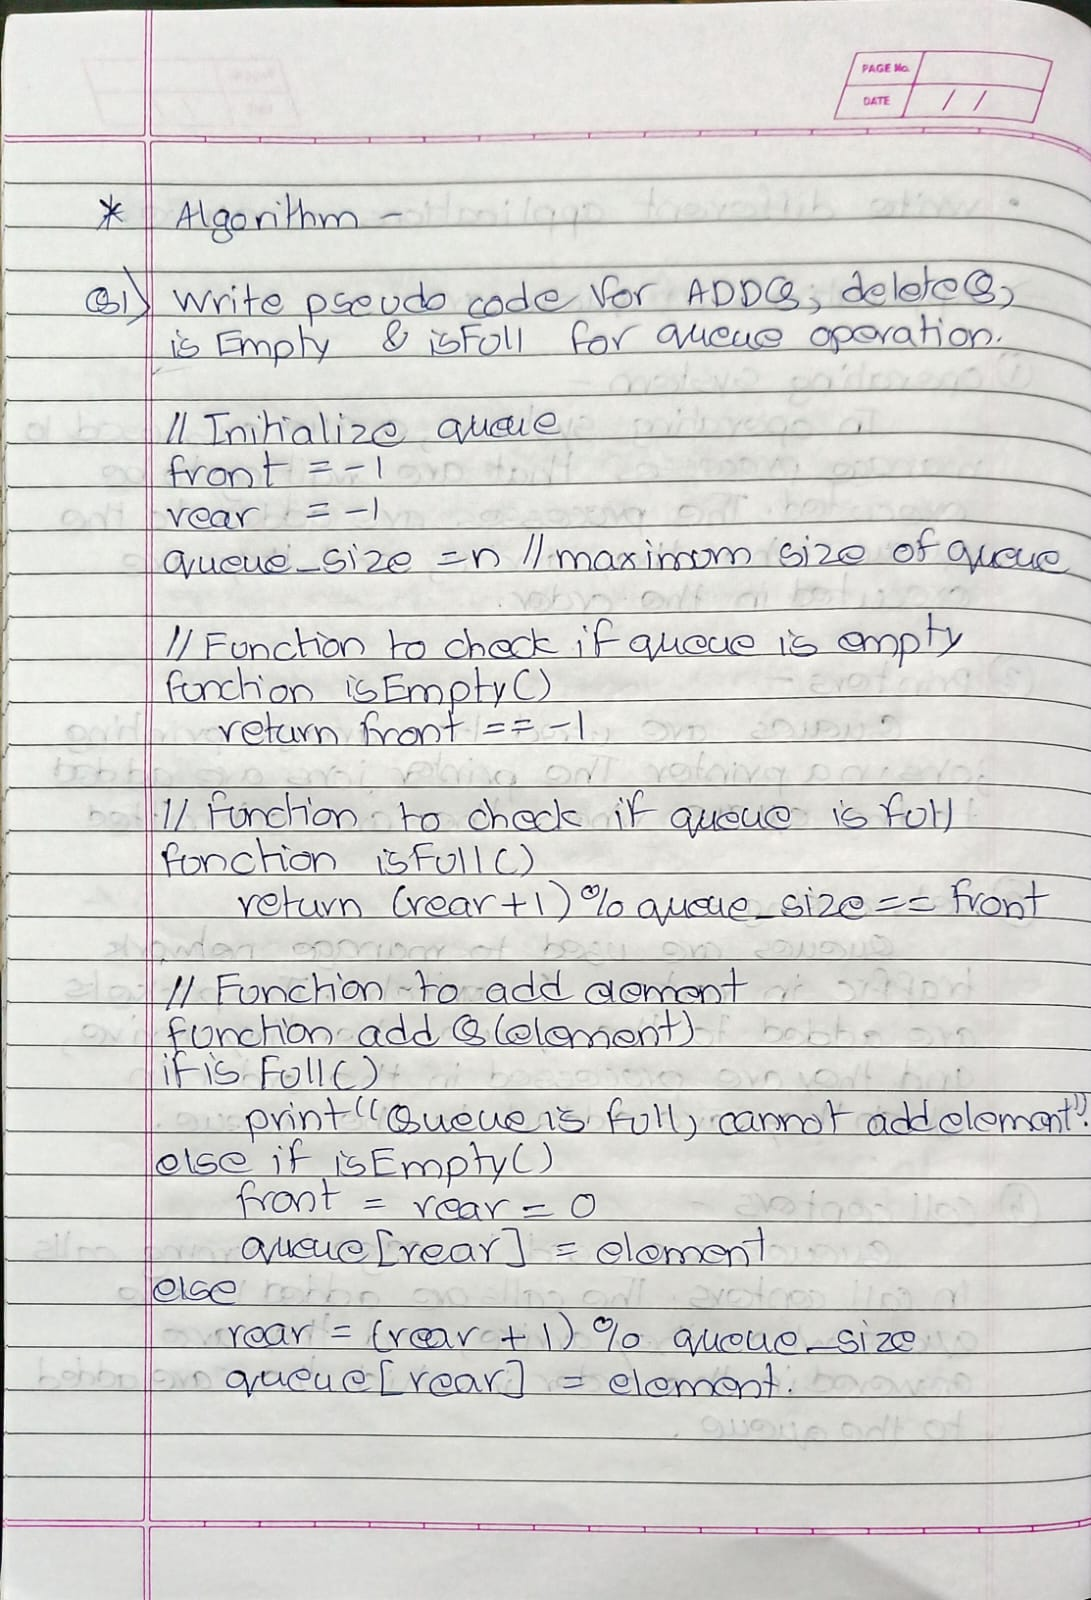 PAGE No.
DATE / /
* Algorithm -
Q1) Write pseudo code for ADDQ, deleteQ,
is Empty & isFull for queue operation.
// Initialize queue
front = -1
rear = -1
queue_size = n // maximum size of queue
// Function to check if queue is empty
function isEmpty()
return front == -1
// function to check if queue is full
function isFull()
return (rear+1) % queue_size == front
// Function to add element
function add Q(element)
if is Full()
print "Queue is full, cannot add element".
else if isEmpty()
front = rear = 0
queue[rear] = element
else
rear = (rear + 1) % queue_size
queue[rear] = element.